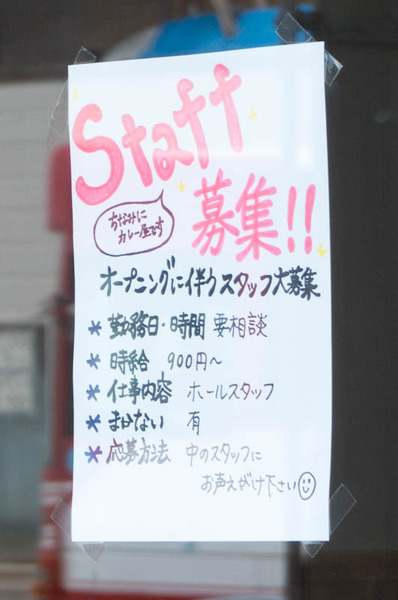 Staff
募集!!
ちなみに
カレー屋です
オープニングに伴うスタッフ大募集
* 勤務日・時間 要相談
* 時給 900円～
* 仕事内容 ホールスタッフ
* まかない 有
* 応募方法 中のスタッフに
お声がけ下さい